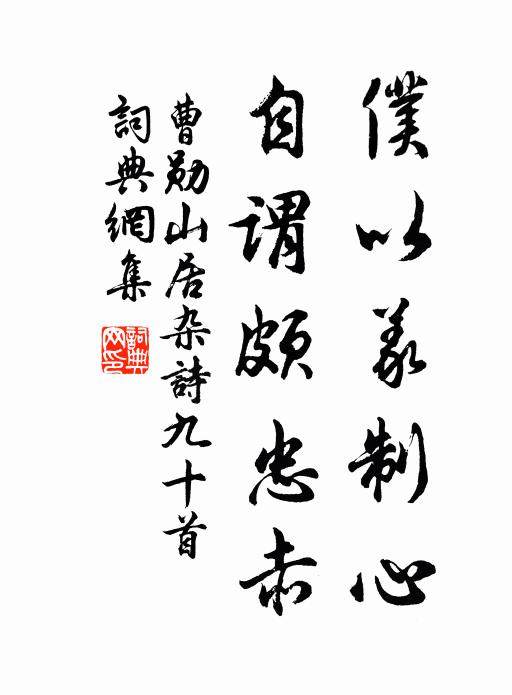 僕以義制心
自謂頗忠赤
曹勛山居杂詩九十首
詞典網集
詞典網印